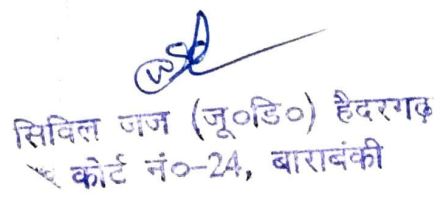 सिविल जज (जू०डि०) हैदरगढ़
कोर्ट नं०-24, बाराबंकी